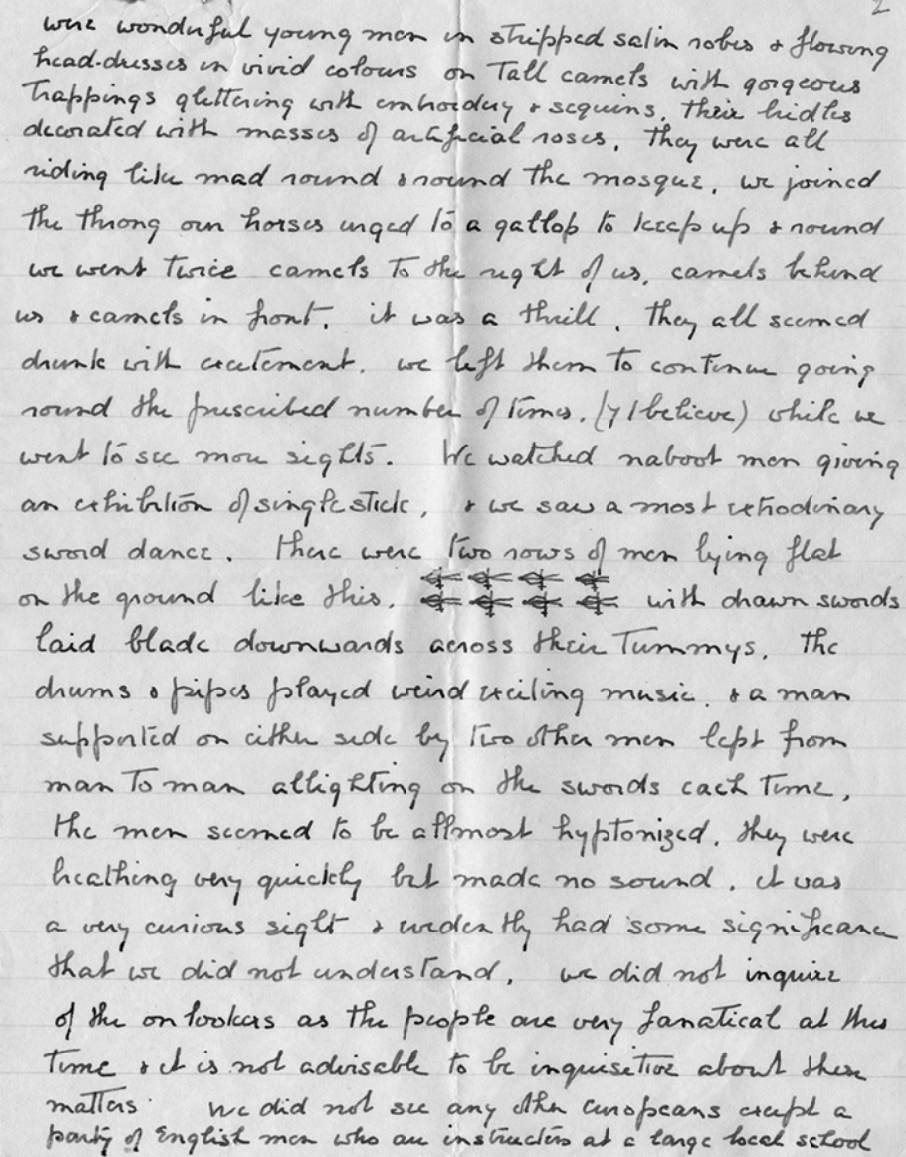 2
were wonderful young men in stripped satin robes & flowing
head-dresses in vivid colours on Tall camels with gorgeous
Trappings glittering with embroidery & sequins, their bridles
decorated with masses of artificial roses, they were all
riding like mad round & round the mosque, we joined
the throng our horses urged to a gallop to keep up & round
we went twice camels to the right of us, camels behind
us & camels in front, it was a thrill, they all seemed
drunk with excitement. we left them to continue going
round the prescribed number of times, (7 I believe) while we
went to see more sights. We watched naboot men giving
an exhibition of single stick, & we saw a most extrodinary
sword dance. There were two rows of men lying flat
on the ground like this, with drawn swords
laid blade downwards across their Tummys, the
drums & pipes played weird exciting music, & a man
supported on either side by two other men lept from
man To man allighting on the swords each time,
the men seemed to be allmost hyptonized, they were
breathing very quickly but made no sound, it was
a very curious sight & evidently had some significance
that we did not understand, we did not inquire
of the onlookers as the people are very fanatical at this
Time & it is not advisable to be inquisitive about these
matters. We did not see any other europeans except a
party of English men who are instructors at a large local school